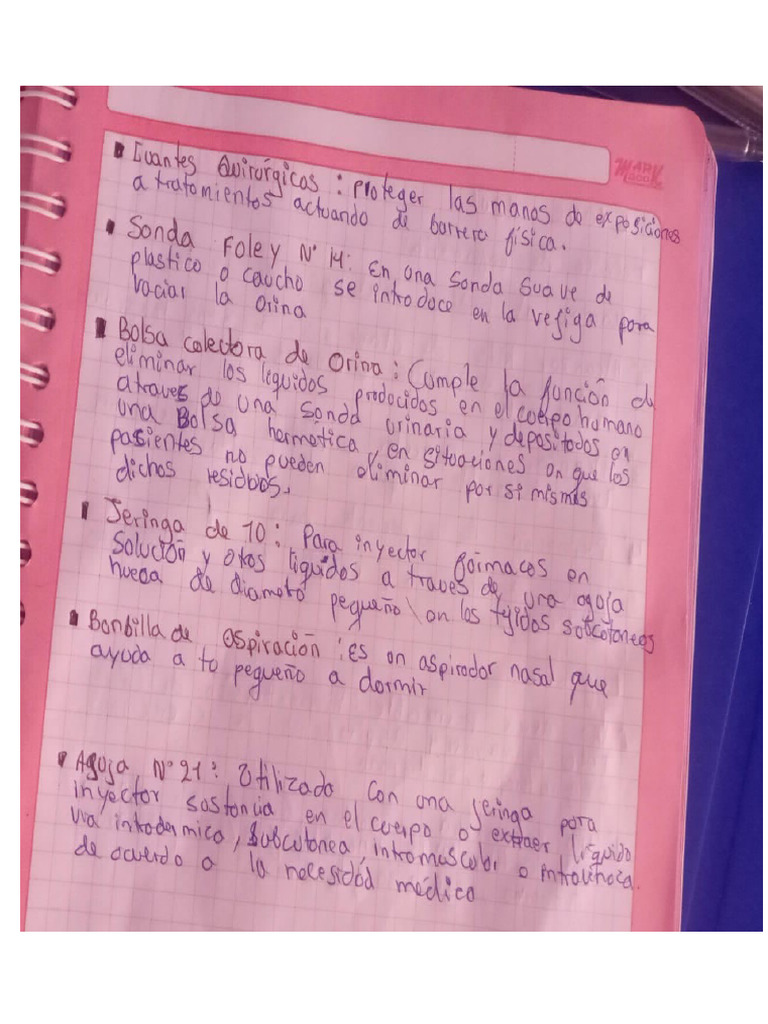 MARK BOOK
Guantes Quirúrgicos : proteger las manos de exposiciones
a tratamientos actuando de barrera física.
Sonda Foley N° 14: En una sonda suave de
plastico o caucho se introduce en la vefiga para
vaciar la orina
Bolsa colectora de orina : Cumple la función de
eliminar los liquidos producidos en el cuerpo humano
atraves de una sonda urinaria y depositados en
una Bolsa hermetica, en situaciones en que los
pasientes no pueden eliminar por si mismas
dichos residuos.
Jeringa de 10 : Para inyector fármacos en
Solución y otos liquidos a traves de una aguja
hueca de diameto pequeño en los tejidos subcotaneos
Bonbilla de aspiración : es on aspirador nasal que
ayuda a to pequeño a dormir
Aguja N° 21 : Utilizada con una Jeringa para
inyector sustoncia en el cuerpo o extraer líquido
via introdermico, subcutonea, intromuscular o introvenoza.
de acuerdo a la necesidad médica